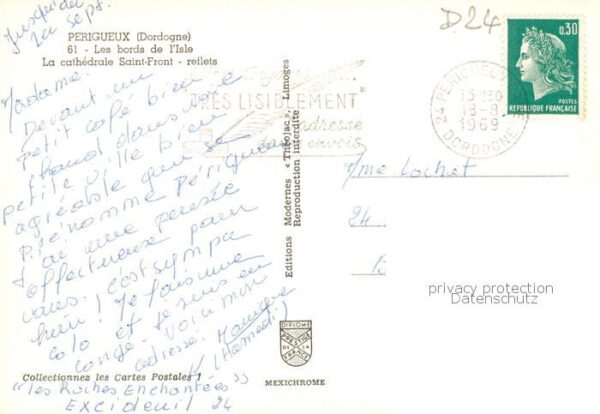 Jusqu'au
1er sept.
PERIGUEUX (Dordogne)
61 - Les bords de l'Isle
La cathédrale Saint-Front - reflets
D24
0,30
POSTES
REPUBLIQUE FRANÇAISE
24 PERIGUEUX
13H30
18-8
1969
DORDOGNE
TRÈS LISIBLEMENT
l'adresse
envois
Madame.
Devant un
petit café bien
chaud dans une
petite ville bien
agréable qui se
prénomme Périgueux
j'ai une pensée
affectueuse pour
vous! c'est sympa
hein! Je fais une
colo et je suis en
congé. Voici mon
adresse. Monique
(Hamedi)
"Les Ruches Enchantées"
EXCIDEUIL 24
Mme Lochet
24
Editions Modernes « Théojac », Limoges
Reproduction interdite
privacy protection
Datenschutz
DIPLOME
PRESTIGE
DE LA
FRANCE
Collectionnez les Cartes Postales !
MEXICHROME